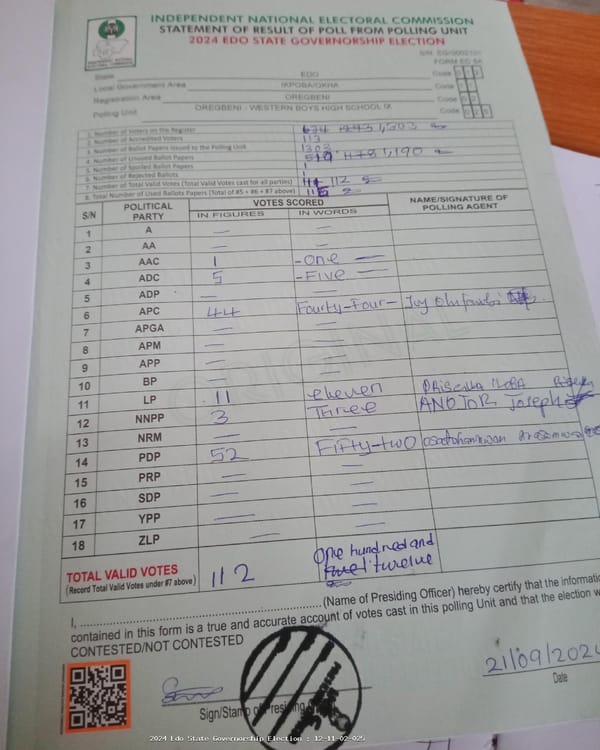 INDEPENDENT NATIONAL ELECTORAL COMMISSION
STATEMENT OF RESULT OF POLL FROM POLLING UNIT
2024 EDO STATE GOVERNORSHIP ELECTION
FORM EC 8A
State EDO Code
Local Government Area IKPOBA/OKHA Code
Registration Area OREGBENI Code
Polling Unit OREGBENI - WESTERN BOYS HIGH SCHOOL IX Code
1. Number of Voters on the Register 1,303
2. Number of Accredited Voters 113
3. Number of Ballot Papers Issued to the Polling Unit 1303
4. Number of Unused Ballot Papers 1,190
5. Number of Spoiled Ballot Papers 1
6. Number of Rejected Ballots 1
7. Number of Total Valid Votes (Total Valid Votes cast for all parties) 112
8. Total Number of Used Ballots Papers (Total of #5 + #6 + #7 above)
S/N POLITICAL PARTY VOTES SCORED NAME/SIGNATURE OF POLLING AGENT
IN FIGURES IN WORDS
1 A — —
2 AA — —
3 AAC 1 -One —
4 ADC 5 -Five —
5 ADP — —
6 APC 44 Fourty-Four-
7 APGA — —
8 APM — —
9 APP — —
10 BP — —
11 LP 11 eleven
12 NNPP 3 Three Joseph
13 NRM — —
14 PDP 52 Fifty-two
15 PRP — —
16 SDP — —
17 YPP — —
18 ZLP — —
TOTAL VALID VOTES 112 One hundred and twelve
(Record Total Valid Votes under #7 above)
ORIGINAL
I, (Name of Presiding Officer) hereby certify that the
contained in this form is a true and accurate account of votes cast in this polling Unit and that the election
CONTESTED/NOT CONTESTED
21/09/2024
Sign/Stamp of Date
2024 Edo State Governorship Election : 12-11-02-025